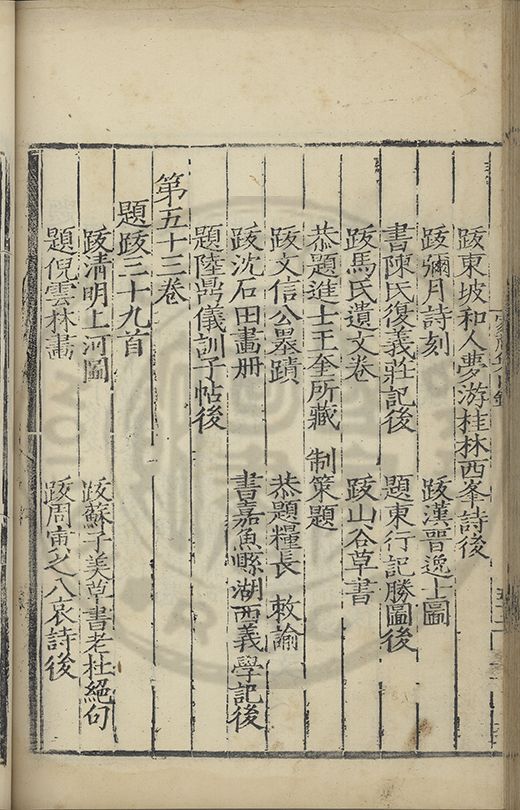 跋東坡和人夢游桂林西峯詩後
跋彌月詩刻　跋漢晉逸士圖
書陳氏復義莊記後　題東行記勝圖後
跋馬氏遺文卷　跋山谷草書
恭題進士王奎所藏　制策題
跋文信公墨蹟　恭題糧長　敕諭
跋沈石田畫册　書嘉魚縣湖西義學記後
題陸鼎儀訓子帖後
第五十三卷
題跋三十九首
跋清明上河圖　跋蘇子美草書老杜絕句
題倪雲林畫　跋周寅之八哀詩後